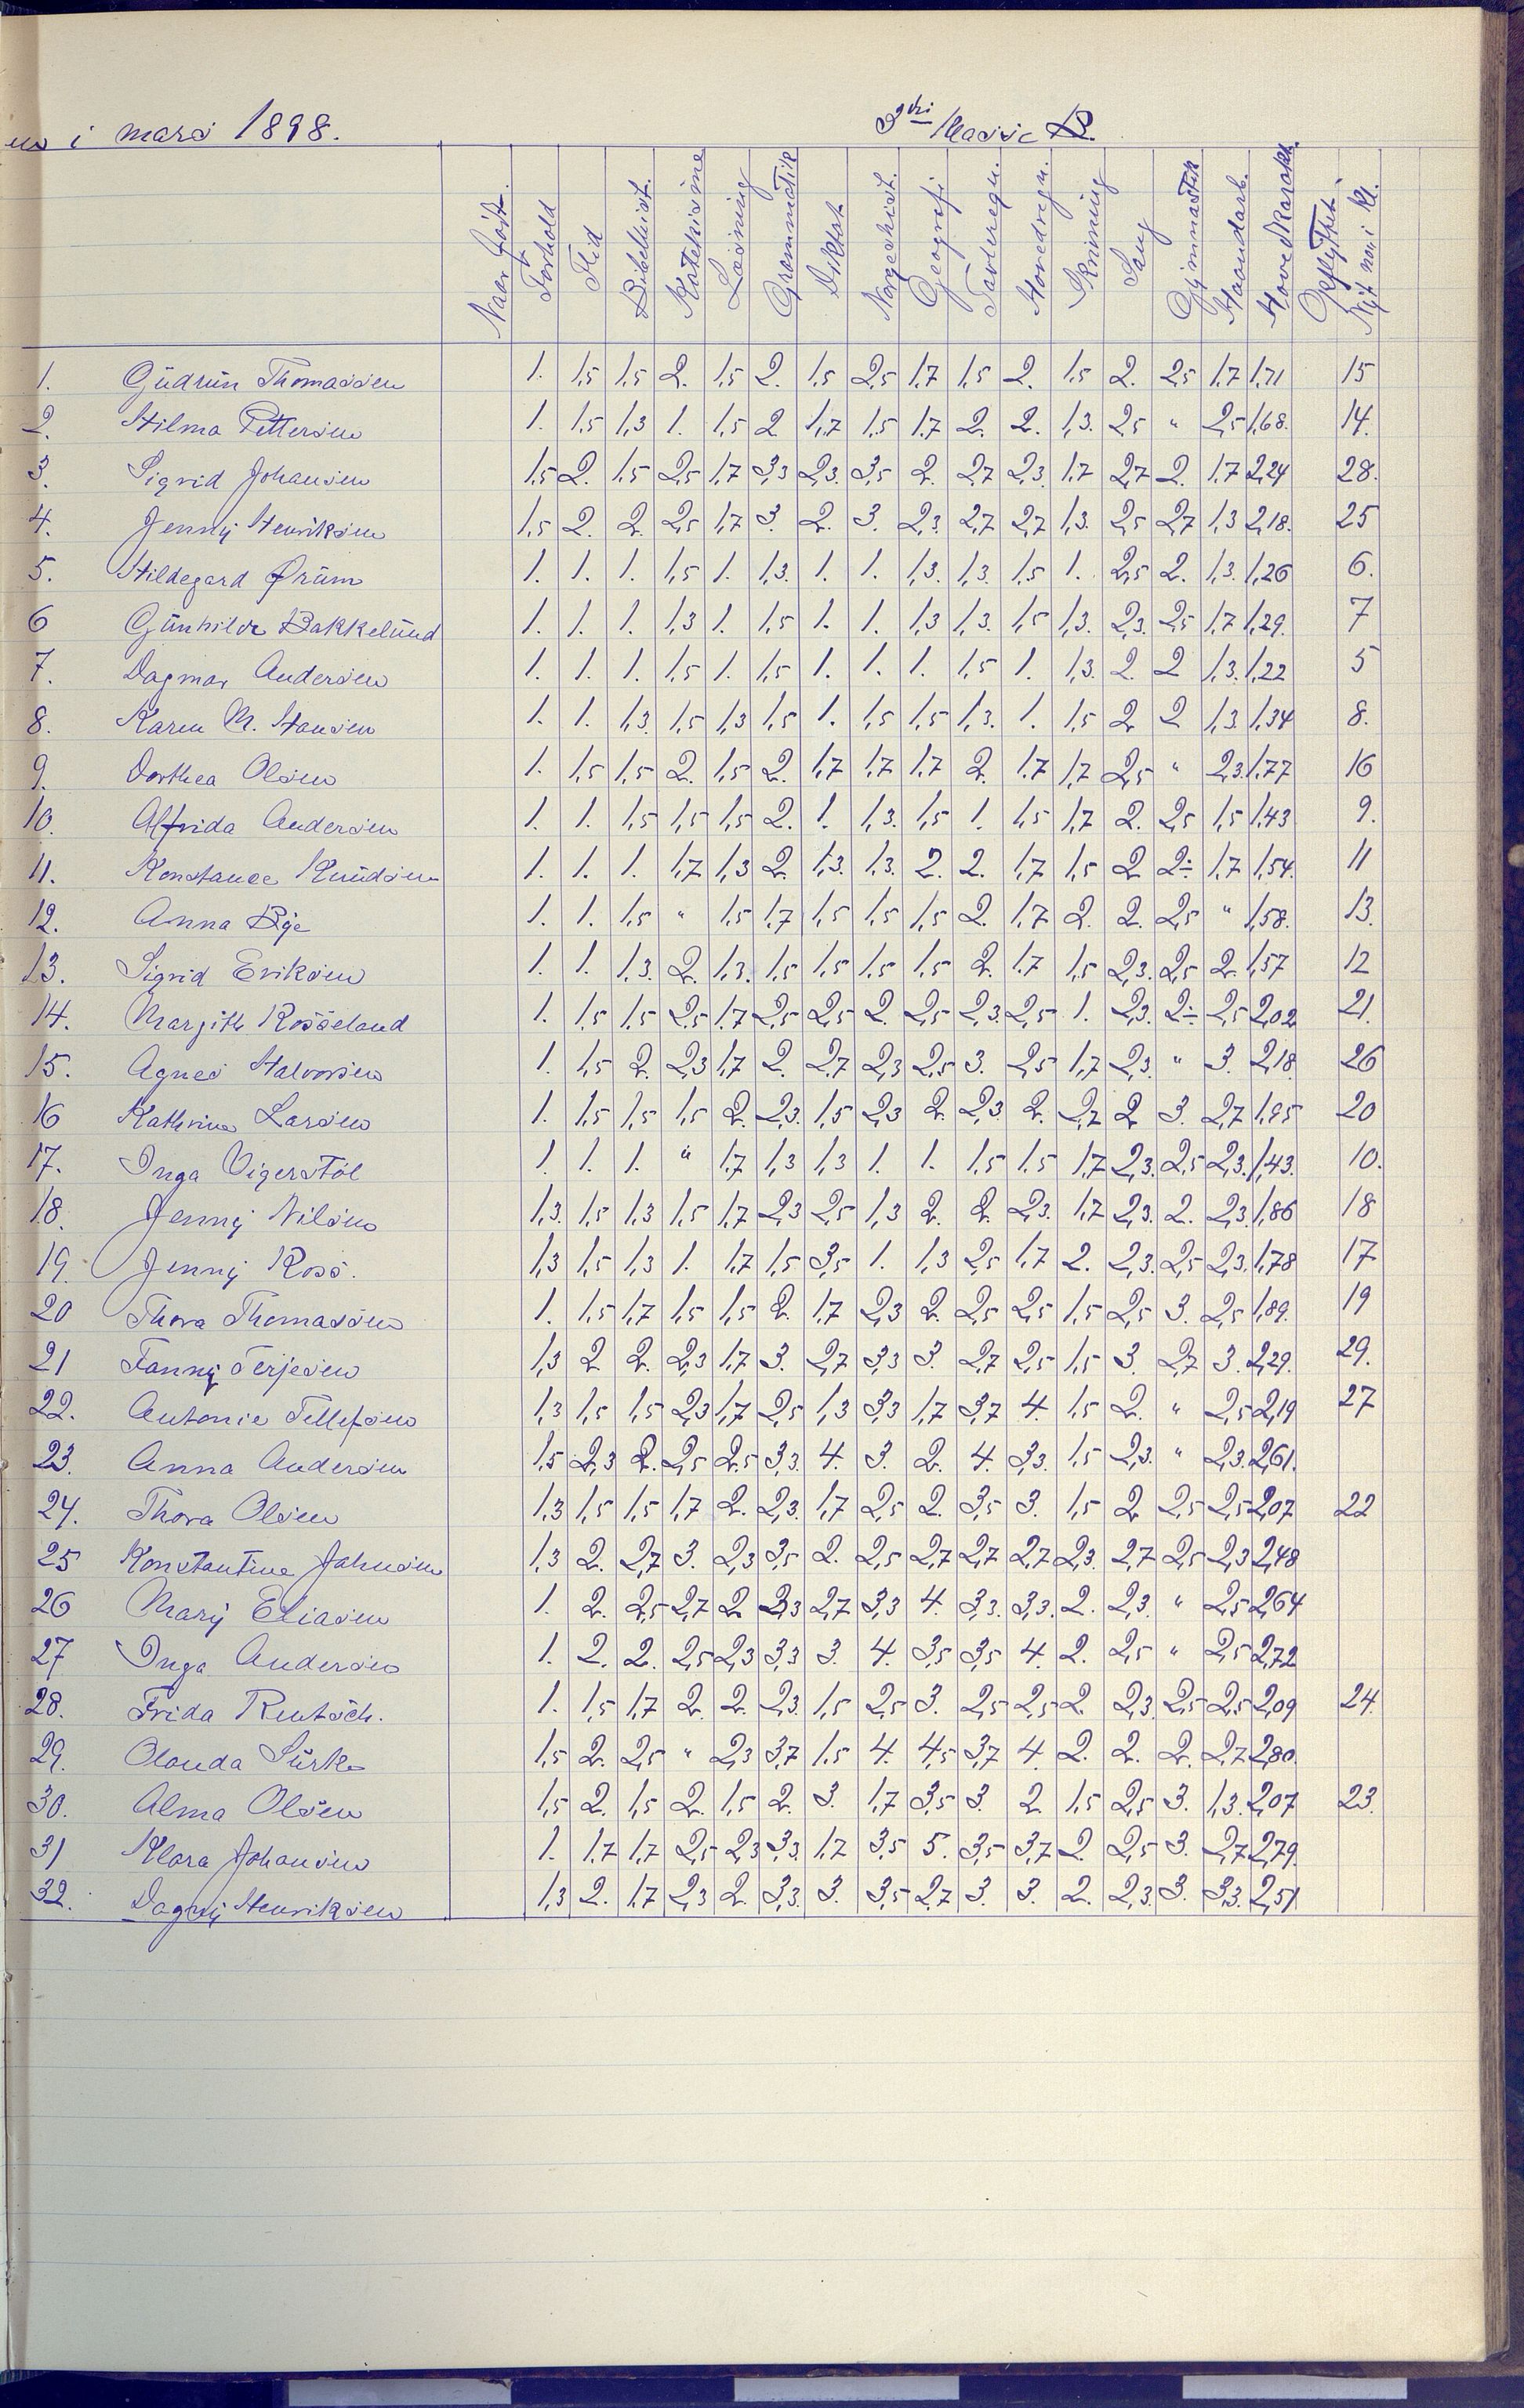 i mars 1898. 3die Klasse B.
Naar født. Forhold Flid Bibelhist. Katekisme Læsning Grammatik Diktat Norgeshist. Geografi Tavleregn. Hovedregn. Skrivning Sang Gjimnastik Haandarb. Hovedkarakt. Opflyttet Nyt no. i Kl.
1. Gudrun Thomassen 1. 1,5 1,5 2. 1,5 2. 1,5 2,5 1,7 1,5 2. 1,5 2. 2,5 1,7 1,71 15
2. Hilma Pettersen 1. 1,5 1,3 1. 1,5 2 1,7 1,5 1,7 2. 2. 1,3. 2,5 " 2,5 1,68. 14.
3. Sigrid Johansen 1,5 2. 1,5 2,5 1,7 3,3 2,3. 3,5 2. 2,7 2,3. 1,7 2,7 2. 1,7 2,24 28.
4. Jenny Henriksen 1,5 2. 2. 2,5 1,7 3. 2. 3. 2,3 2,7 2,7 1,3. 2,5 2,7 1,3 2,18. 25
5. Hildegard Ørum 1. 1. 1. 1,5 1. 1,3. 1. 1. 1,3. 1,3. 1,5 1. 2,5 2. 1,3. 1,26 6.
6 Gunhilde Bakkelund 1. 1. 1. 1,3 1. 1,5 1. 1. 1,3 1,3. 1,5 1,3. 2,3. 2,5 1,7 1,29. 7
7. Dagmar Andersen 1. 1. 1. 1,5 1. 1,5 1. 1. 1. 1,5 1. 1,3. 2. 2 1,3. 1,22 5
8. Karen M. Hansen 1. 1. 1,3. 1,5 1,3 1,5 1. 1,5 1,5 1,3. 1. 1,5 2 2 1,3. 1,34 8.
9. Dorthea Olsen 1. 1,5 1,5 2. 1,5 2. 1,7 1,7 1,7 2. 1,7 1,7 2,5 " 2,3. 1,77 16
10. Alfrida Andersen 1. 1. 1,5 1,5 1,5 2. 1. 1,3. 1,5 1. 1,5 1,7 2. 2,5 1,5 1,43 9.
11. Konstance Knudsen 1. 1. 1. 1,7 1,3 2. 1,3. 1,3. 2. 2. 1,7 1,5 2 2÷ 1,7 1,54. 11
12. Anna Bije 1. 1. 1,5 " 1,5 1,7 1,5 1,5 1,5 2. 1,7 2. 2. 2,5 " 1,58. 13.
13. Sigrid Eriksen 1. 1. 1,3. 2. 1,3. 1,5 1,5 1,5 1,5 2. 1,7 1,5 2,3. 2,5 2. 1,57 12
14. Margith Rosseland 1. 1,5 1,5 2,5 1,7 2,5 2,5 2. 2,5 2,3. 2,5 1. 2,3. 2÷ 2,5 2,02 21.
15. Agnes Halvorsen 1. 1,5 2. 2,3 1,7 2. 2,7 2,3 2,5 3. 2,5 1,7 2,3. " 3. 2,18. 26
16 Kathrine Larsen 1. 1,5 1,5 1,5 2. 2,3. 1,5 2,3 2. 2,3 2. 2,7 2 3. 2,7 1,95 20
17. Inga Vigerstøl 1. 1. 1. " 1,7 1,3 1,3 1. 1. 1,5 1,5 1,7 2,3. 2,5 2,3. 1,43. 10.
18. Jenny Nilsen 1,3. 1,5 1,3 1,5 1,7 2,3 2,5 1,3 2. 2. 2,3. 1,7 2,3. 2. 2,3. 1,86 18
19. Jenny Ross. 1,3 1,5 1,3 1. 1,7 1,5 3,5 1. 1,3 2,5 1,7 2. 2,3. 2,5 2,3. 1,78 17
20 Thora Thomassen 1. 1,5 1,7 1,5 1,5 2. 1,7 2,3 2. 2,5 2,5 1,5 2,5 3. 2,5 1,89. 19
21 Fanny Terjesen 1,3 2. 2. 2,3 1,7 3. 2,7 3,3 3. 2,7 2,5 1,5 3. 2,7 3. 2,29. 29.
22. Antonie Tellefsen 1,3 1,5 1,5 2,3 1,7 2,5 1,3 3,3 1,7 3,7 4. 1,5 2. " 2,5 2,19 27
23. Anna Andersen 1,5 2,3 2. 2,5 2,5 3,3. 4. 3. 2. 4. 3,3. 1,5 2,3. " 2,3. 2,61.
24. Thora Olsen 1,3 1,5 1,5 1,7 2. 2,3. 1,7 2,5 2. 3,5 3. 1,5 2 2,5 2,5 2,07 22
25 Konstantine Jahnsen 1,3 2. 2,7 3. 2,3 3,5 2. 2,5 2,7 2,7 2,7 2,3. 2,7 2,5 2,3 2,48
26 Mary Eliasen 1. 2. 2,5 2,7 2. 3,3 2,7 3,3 4. 3,3. 3,3. 2. 2,3. " 2,5 2,64
27 Inga Andersen 1. 2. 2. 2,5 2,3 3,3 3. 4. 3,5 3,5 4. 2. 2,5 " 2,5 2,72
28. Frida Rentsch. 1. 1,5 1,7 2. 2. 2,3. 1,5 2,5 3. 2,5 2,5 2. 2,3. 2,5 2,5 2,09 24.
29. Olanda Sürke 1,5 2. 2,5 " 2,3 3,7 1,5 4. 4,5 3,7 4. 2. 2. 2. 2,7 2,80.
30. Alma Olsen 1,5 2. 1,5 2. 1,5 2. 3. 1,7 3,5 3. 2. 1,5 2,5 3. 1,3. 2,07 23.
31 Klara Johansen 1. 1,7 1,7 2,5 2,3 3,3. 1,7 3,5 5. 3,5 3,7 2. 2,5 3. 2,7 2,79.
32. Dagny Henriksen 1,3 2. 1,7 2,3 2. 3,3. 3. 3,5 2,7 3. 3. 2. 2,3. 3. 3,3. 2,51